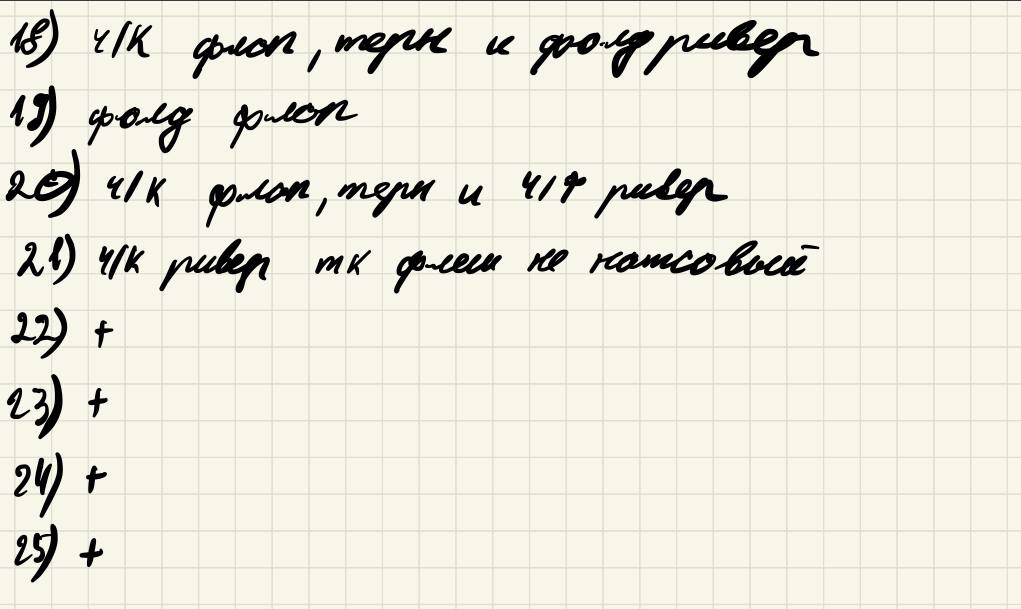 18) ч/к флоп, терн и фолд ривер
19) фолд флоп
20) ч/к флоп, терн и ч/ф ривер
21) ч/к ривер тк флеш не натсовый
22) +
23) +
24) +
25) +